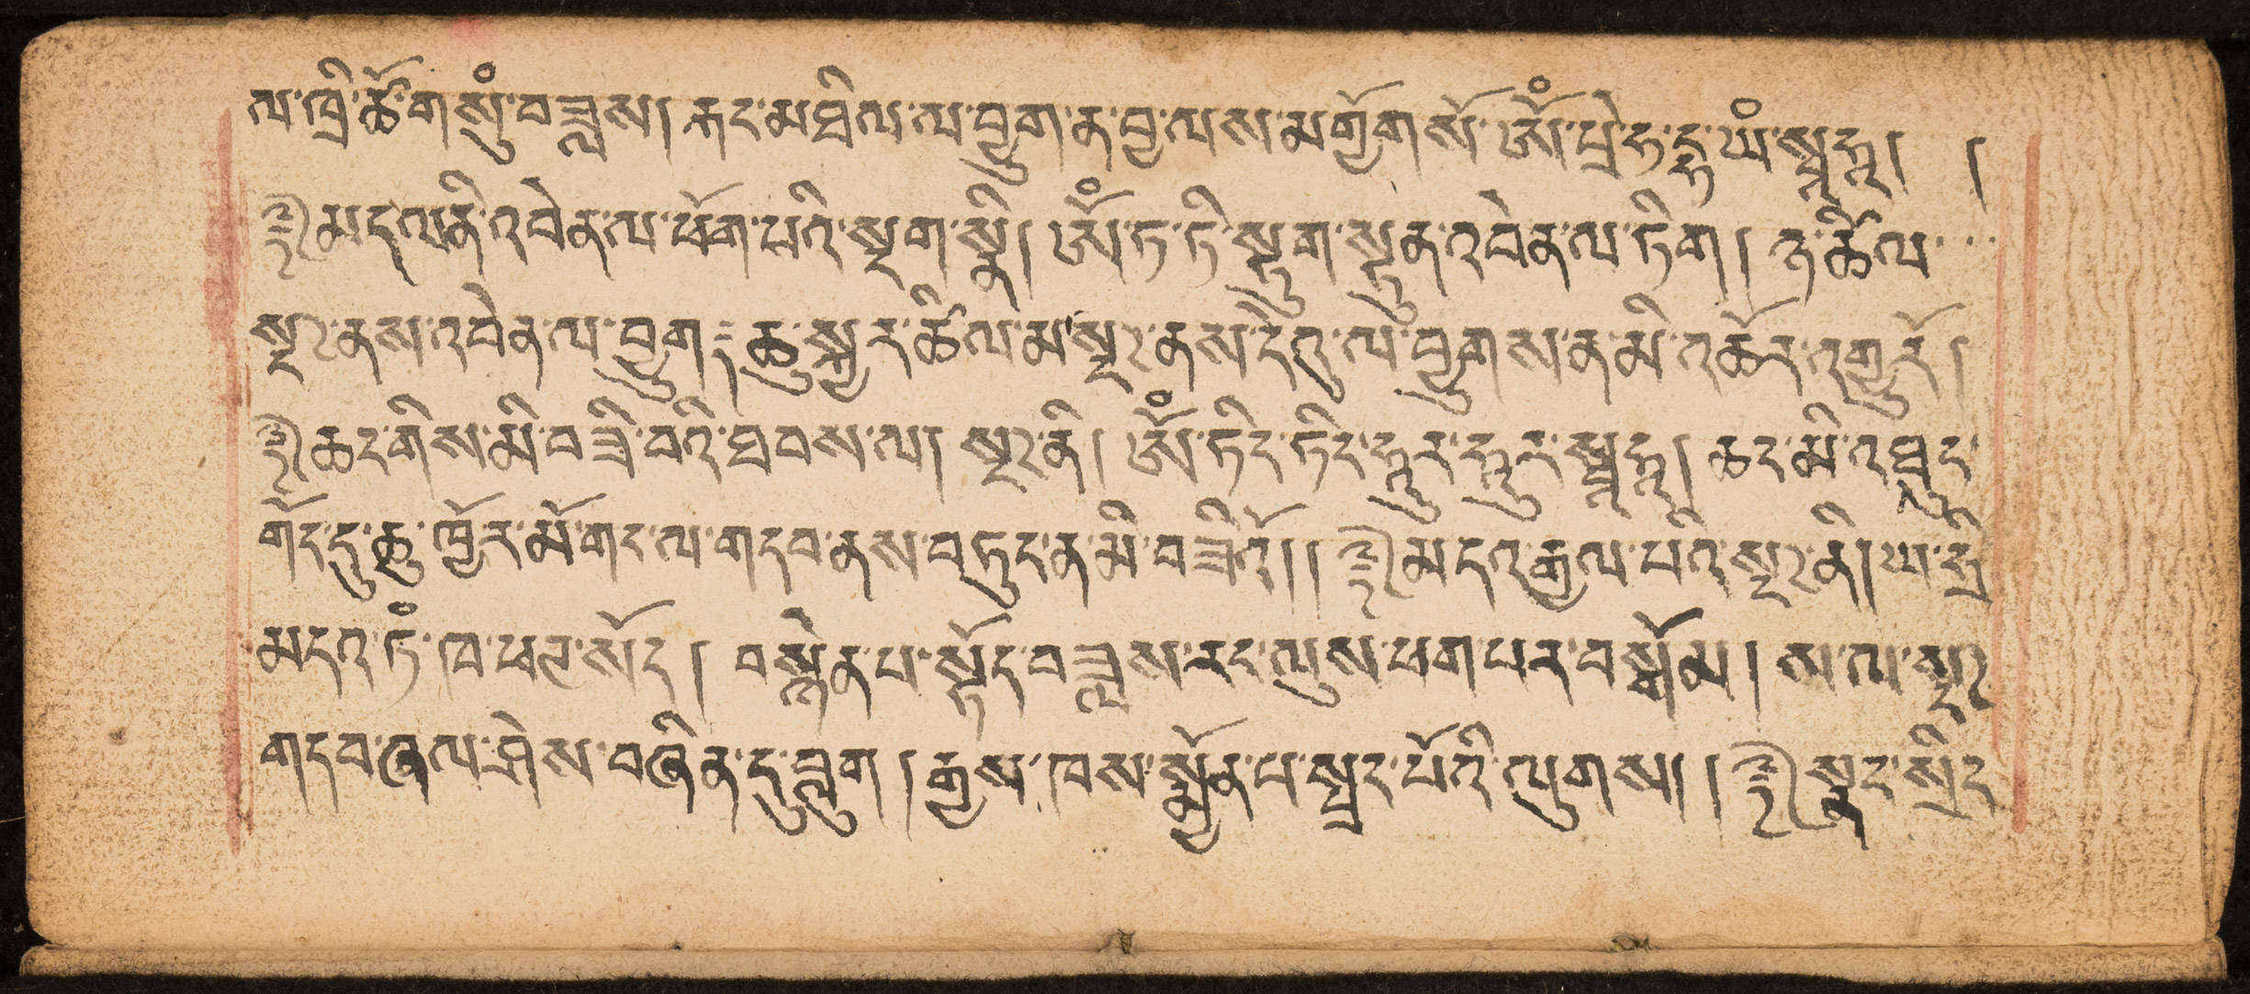 ལ་ཁྲི་ཚོ་གསུཾ་བཟླས། རྐང་མཐིལ་ལ་བྱུག་ན་བྱ་ལས་མགྱོགས་སོ་ཨོཾ་པྲེ་ཏ་དུ་ཡཾ་སྭཱཧཱ། །
༈ མདའ་ནི་འབེན་ལ་ཕོག་པའི་སྔགས་ནི། ཨོཾ་ཏ་ཏི་སྨུག་སྨུན་འབེན་ལ་ཏིག། ཉ་ཚིལ་
སྔ་ནས་འབེན་ལ་བྱུག༔ ཆུ་སྐྱར་ཚིལ་མ་སྔ་ནས་དེའུ་ལ་བྱུགས་ན་མི་འཚོར་འགྱུརོ།
༈ ཆང་གིས་མི་བཟི་བའི་ཐབས་ལ། སྔ་ནི། ཨོཾ་ཏིང་ཏིང་ཧུར་ཧུར་སྭཱཧཱ། ཆང་མི་འཐུང་
གོང་དུ་ཆུ་ཁྱོར་མོ་གང་ལ་གདབ་ནས་བཏུང་ན་མི་བཟིའོ།། ༈ མདའ་རྒྱལ་པའི་སྔ་ནི། ཡ་ཧྲི་
མདའ་ཏཾ་ཁ་ཕཊ་སོད། བསྙེན་པ་སྟོང་བཟླས་རང་ལུས་ཕག་པར་བསྒོམ། ས་ལ་སྔ་
གདབ་ཞལ་ཤེས་བཞིན་དུ་བླུག། རྒྱས་ཁས་སྨྱོན་པ་སྤྲང་པོའི་ལུགས།། ༈ སྣང་སྲིད་